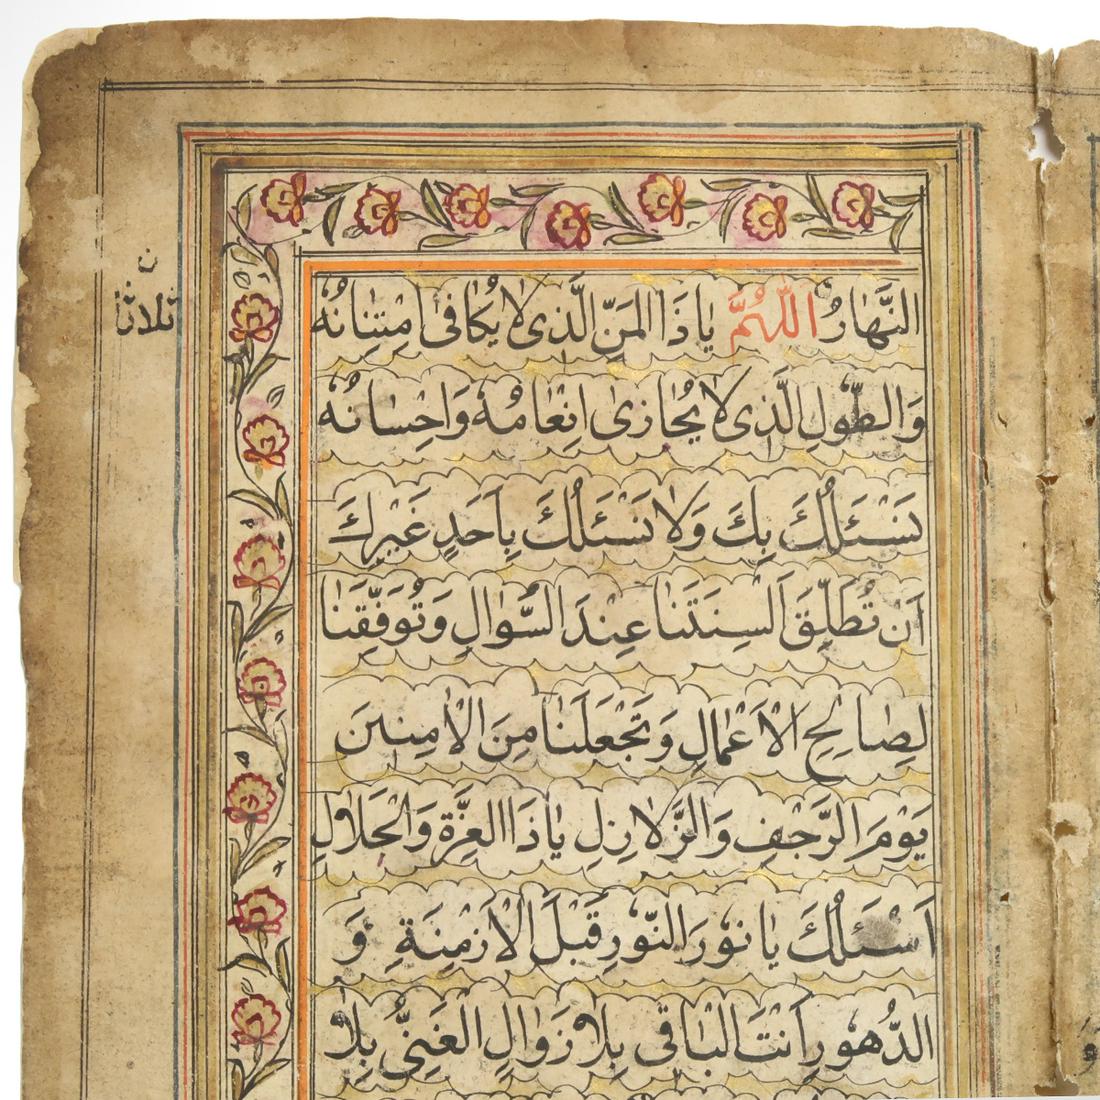 النَّهَارُ اَللّٰهُمَّ يَاذَا الْمَنِّ الَّذِى لَا يُكَافٰى اِمْتِنَانُهُ
وَالطَّوْلِ الَّذِى لَا يُجَازٰى اِنْعَامُهُ وَاِحْسَانُهُ
نَسْئَلُكَ بِكَ وَلَا نَسْئَلُكَ بِاَحَدٍ غَيْرِكَ
اَنْ تُطَلِّقَ اَلْسِنَتَنَا عِنْدَ السُّوَالِ وَتُوَفِّقَنَا
لِصَالِحِ الْاَعْمَالِ وَتَجْعَلَنَا مِنَ الْاٰمِنِينَ
يَوْمَ الرَّجْفِ وَالزَّلَازِلِ يَاذَا الْعِزَّةِ وَالْجَلَالِ
اَسْئَلُكَ يَا نُورَ النُّورِ قَبْلَ الْاَزْمِنَةِ وَ
الدُّهُورِ اَنْتَ الْبَاقِى بِلَا زَوَالٍ الْغَنِىُّ بِلَا
ثلاثا